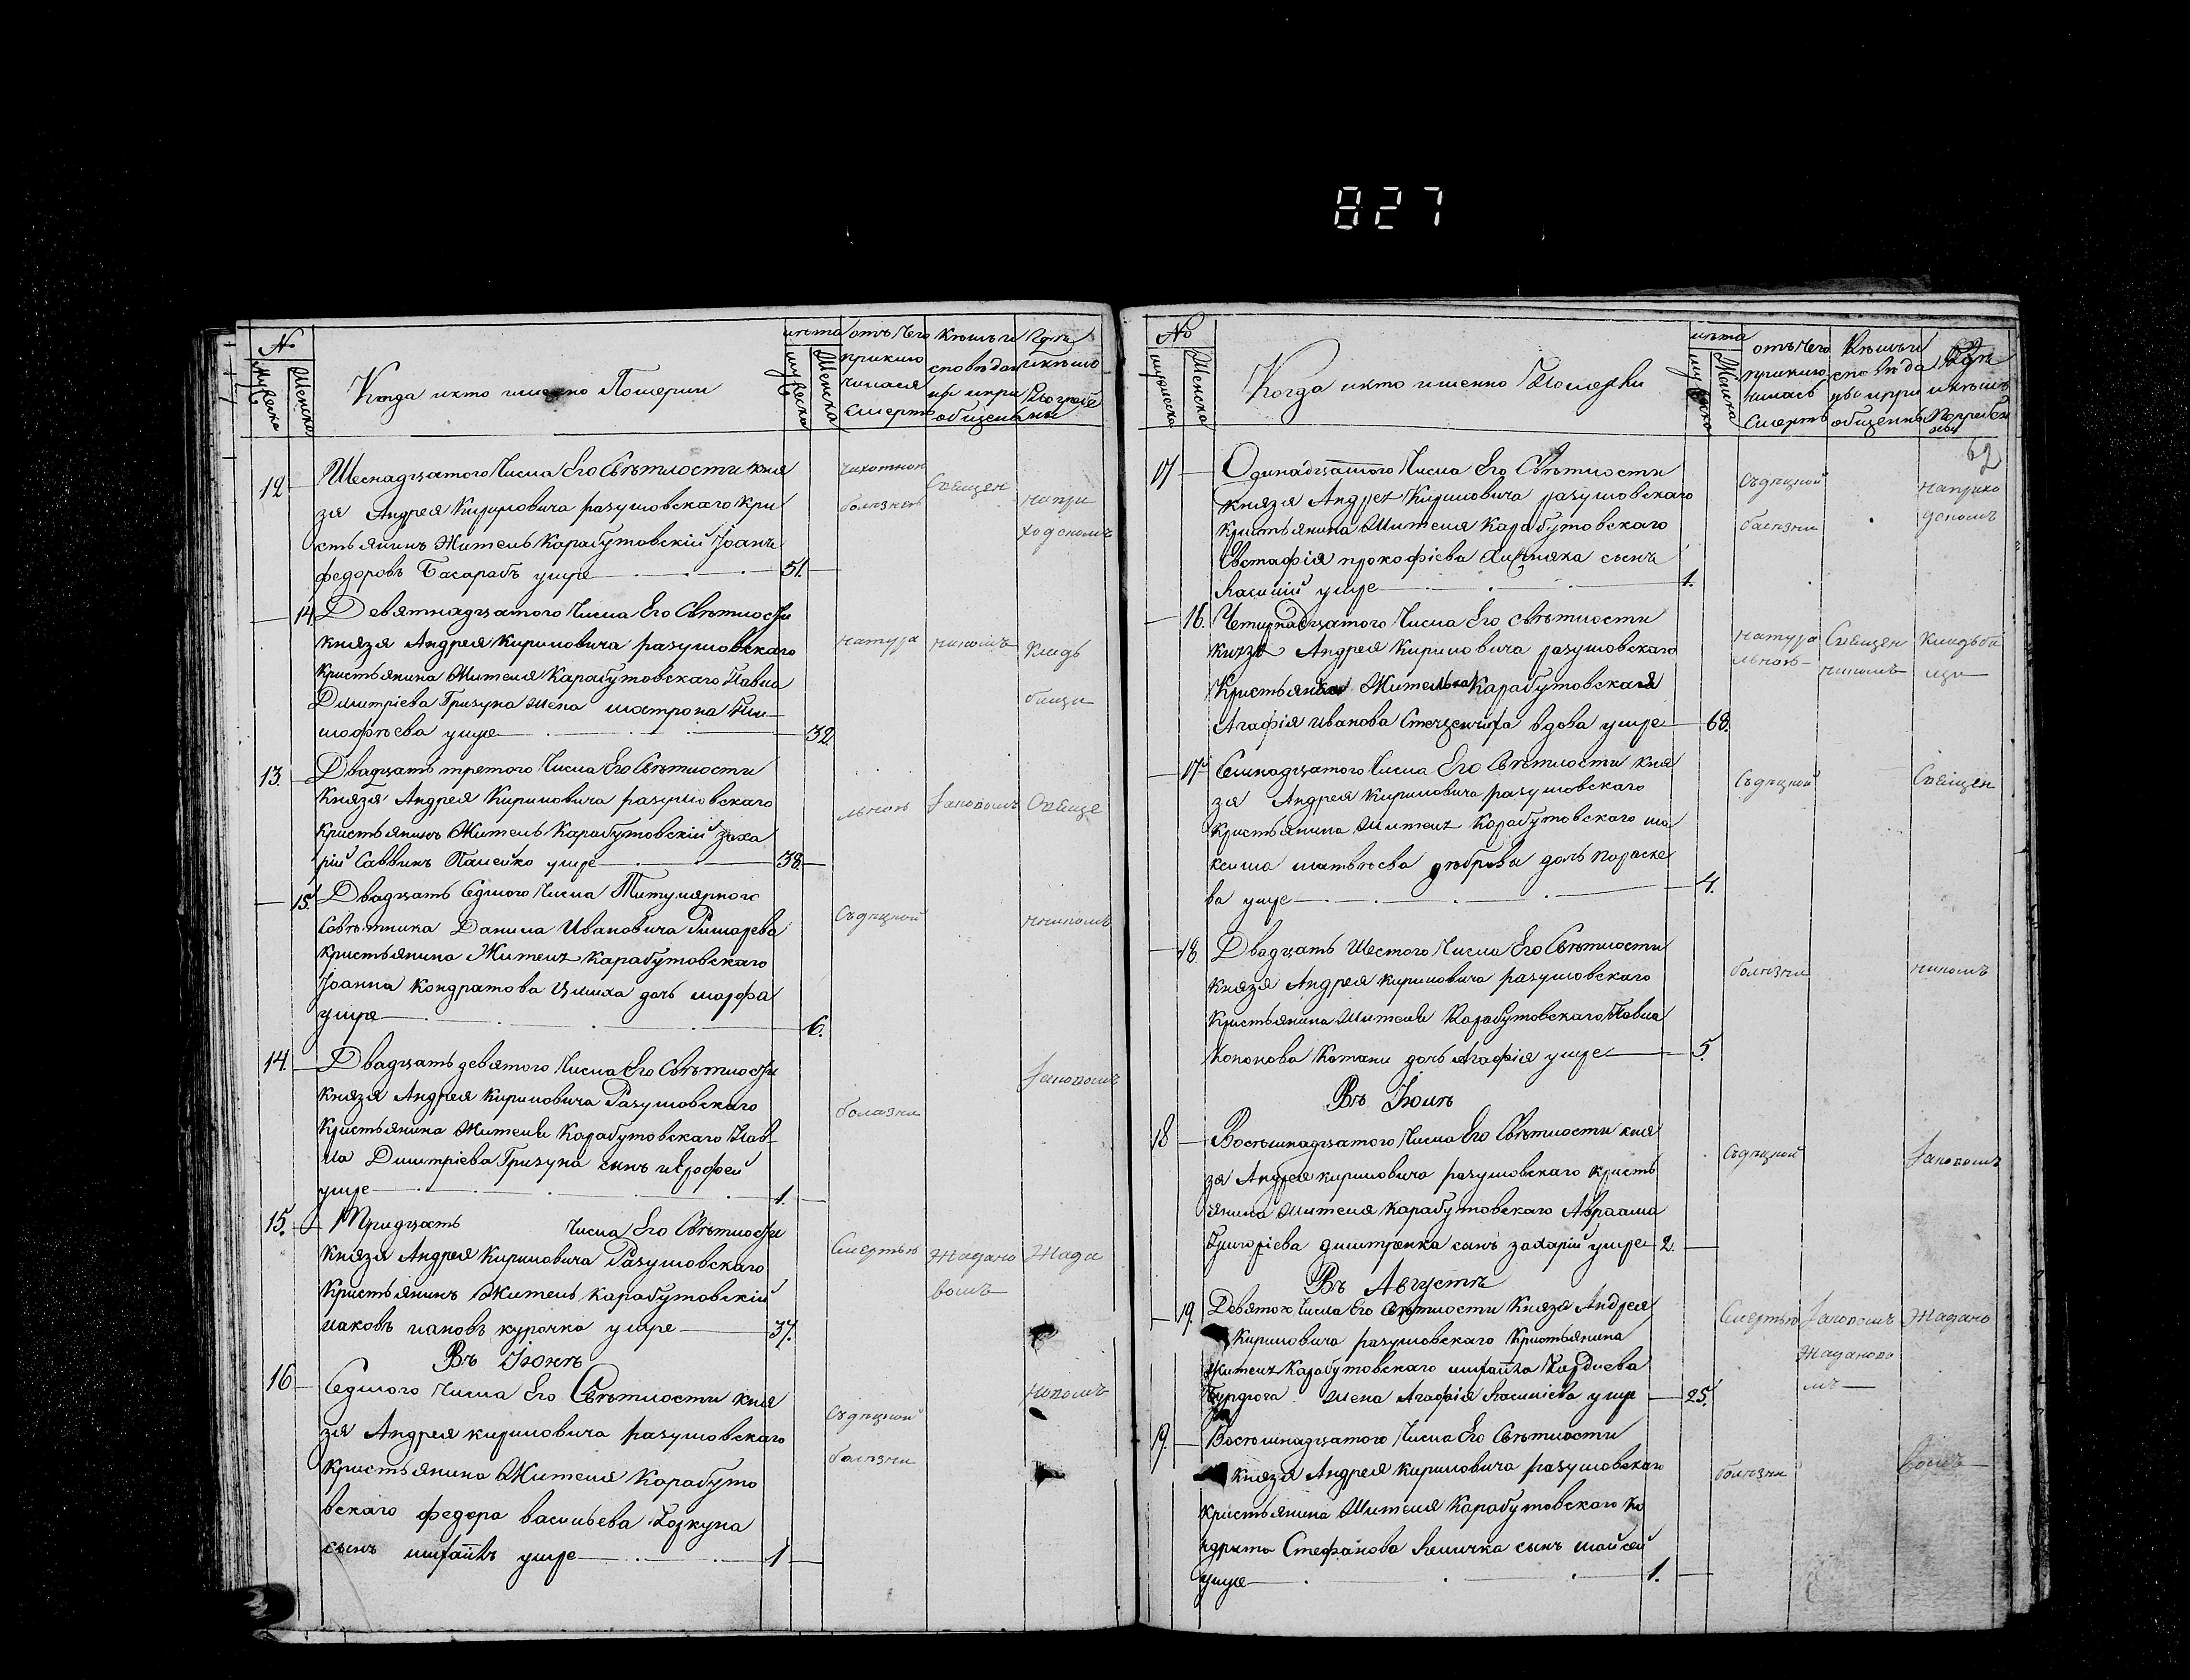 827
№
Мужеска
Женска
Когда и кто именно Померли
лѣта
мужеска
Женска
отъ чего
приклю
чилася
смерть
Кѣмъ и
сповѣдан
ы и при
общены
Гдѣ
и кѣмъ
Погребе
ны
12 Шеснадцатого Числа Его Свѣтлости кня
зя Андрея Кириловича разумовскаго кри
стьянинъ Житель Карабутовскій Іоанъ
федоровъ Басарабъ умре 51.
чахотною
болѣзнею
Священ
напри
ходскомъ
14 Девятнадцатого Числа Его Свѣтлости
князя Андрея Кириловича разумовскаго
кристьянина Жителя Карабутовскаго Павла
Димитріева Гризуна жена матрона
умре 32.
натура
никомъ
Клад
бищи
13. Двадцать третого Числа Его Свѣтлости
Князя Андрея Кириловича разумовскаго
кристьянинъ Житель Карабутовскій заха
рій Саввинъ Палейко умре 38
льною
Іаковомъ
Свяще
15. Двадцать Седмого Числа Титулярного
Совѣтника Данила Ивановича
кристьянина Жителя Карабутовскаго
Іоанна Кондратова дочь марфа
умре 6.
нникомъ
14. Двадцать девятого Числа Его Свѣтлости
князя Андрея Кириловича Разумовскаго
Кристьянина Жителя Карабутовскаго Пав
ла Димитріева Гризуна сынъ
умре 1.
болѣзни
Іаковомъ
15. Тридцать Числа Его Свѣтлости
князя Андрея Кириловича Разумовскаго
Кристьянинъ Житель Карабутовскій
иаковъ курочка умре 37.
Смертью
Жадано
вомъ
Жада
Въ Іюнѣ
16 Седмого Числа Его Свѣтлости кня
зя Андрея кириловича разумовскаго
кристьянина Жителя Карабуто
вскаго федора васильева Коркуна
сынъ умре 1
болѣзни
№
мужеска
Женска
Когда и кто именно Померли
лѣта
мужеска
Женска
отъ чего
приклю
чилась
Смерть
Кѣмъ и
споведа
ны и при
общенны
Гдѣ
и кѣмъ
Погребен
ны
62
17 Одинадцатого Числа Его Свѣтлости
князя Андрея Кириловича разумовскаго
кристьянина Жителя Карабутовскаго
Евстафія прокофіева сынъ
Василій умре 1.
болѣзни
наприхо
дскомъ
16. Четирнадцатого Числа Его свѣтлости
князя Андрея Кириловича разумовскаго
Кристьянка Жителька Карабутовская
Агафія иванова вдова умре 68.
натура
льною
Священ
никомъ
Кладби
щи
17 Семнадцатого Числа Его Свѣтлости кня
зя Андрея кириловича разумовскаго
кристьянина Жителя Карабутовскаго ма
ксима матвѣева дочь параске
ва умре 4.
Священ
18 Двадцать Шестого Числа Его Свѣтлости
князя Андрея кириловича разумовскаго
Кристьянина Жителя Карабутовскаго Павла
Кононова дочь Агафія умре 5.
болѣзни
никомъ
Въ Іюлѣ
18 Восемнадцатого Числа Его Свѣтлости кня
зя Андрея кириловича разумовскаго кристь
янина Жителя Карабутовскаго Авраама
Григоріева димитренка сынъ захарій умре 2.
Іаковомъ
Въ Августѣ
19. Девятого Числа Его Свѣтлости Князя Андрея
Кириловича разумовскаго Кристьянина
Жителя Карабутовскаго
жена Агафія Василіева умре 25.
Смертью
Іаковомъ
Жаданово
мъ
Жадано
19. Восемнадцатого Числа Его Свѣтлости
князя Андрея кириловича разумовскаго
кристьянина Жителя Карабутовскаго Ко
ндрата Стефанова сынъ мойсей
умре 1.
болѣзни
вомъ